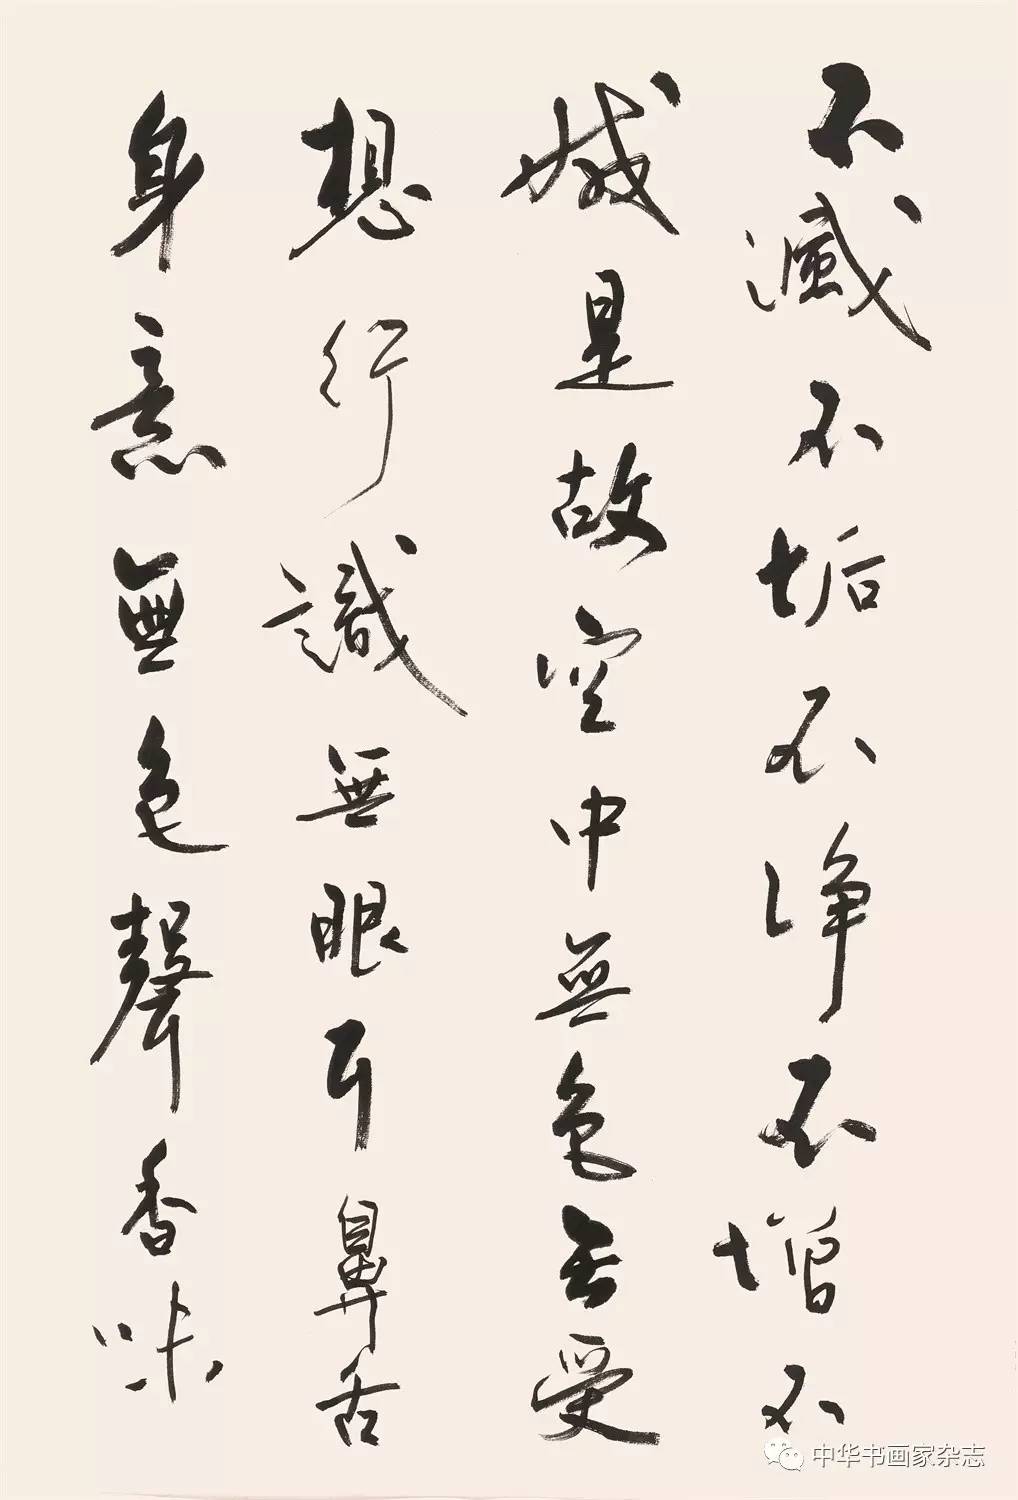 不滅不垢不净不增不
減是故空中無色無受
想行識無眼耳鼻舌
身意無色聲香味
中华书画家杂志